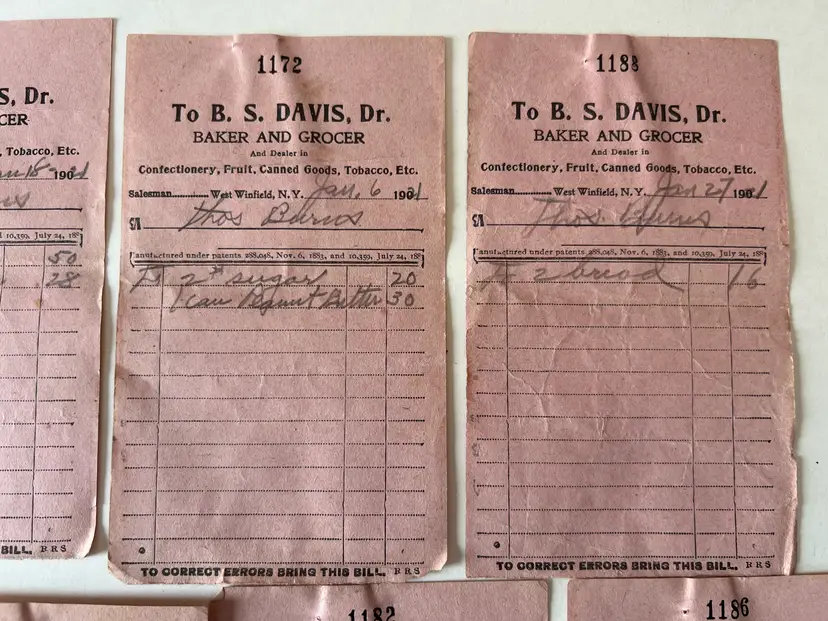 S, Dr.
CER
, Tobacco, Etc.
18 1901
d 10,350, July 24, 188
50
28
BILL. R R S
1172
To B. S. DAVIS, Dr.
BAKER AND GROCER
And Dealer in
Confectionery, Fruit, Canned Goods, Tobacco, Etc.
Salesman West Winfield, N. Y. Jan. 6 190
M
Thos Burns
anufactured under patents 288,048, Nov. 6, 1883, and 10,350, July 24, 188
To 2# sugar 20
1 can Peanut Butter 30
TO CORRECT ERRORS BRING THIS BILL. R R S
1188
To B. S. DAVIS, Dr.
BAKER AND GROCER
And Dealer in
Confectionery, Fruit, Canned Goods, Tobacco, Etc.
Salesman West Winfield, N. Y. Jan 27 190
M
Thos. Burns
anufactured under patents 288,048, Nov. 6, 1883, and 10,350, July 24, 188
To 2 bread 16
TO CORRECT ERRORS BRING THIS BILL. R R S
1182
1186